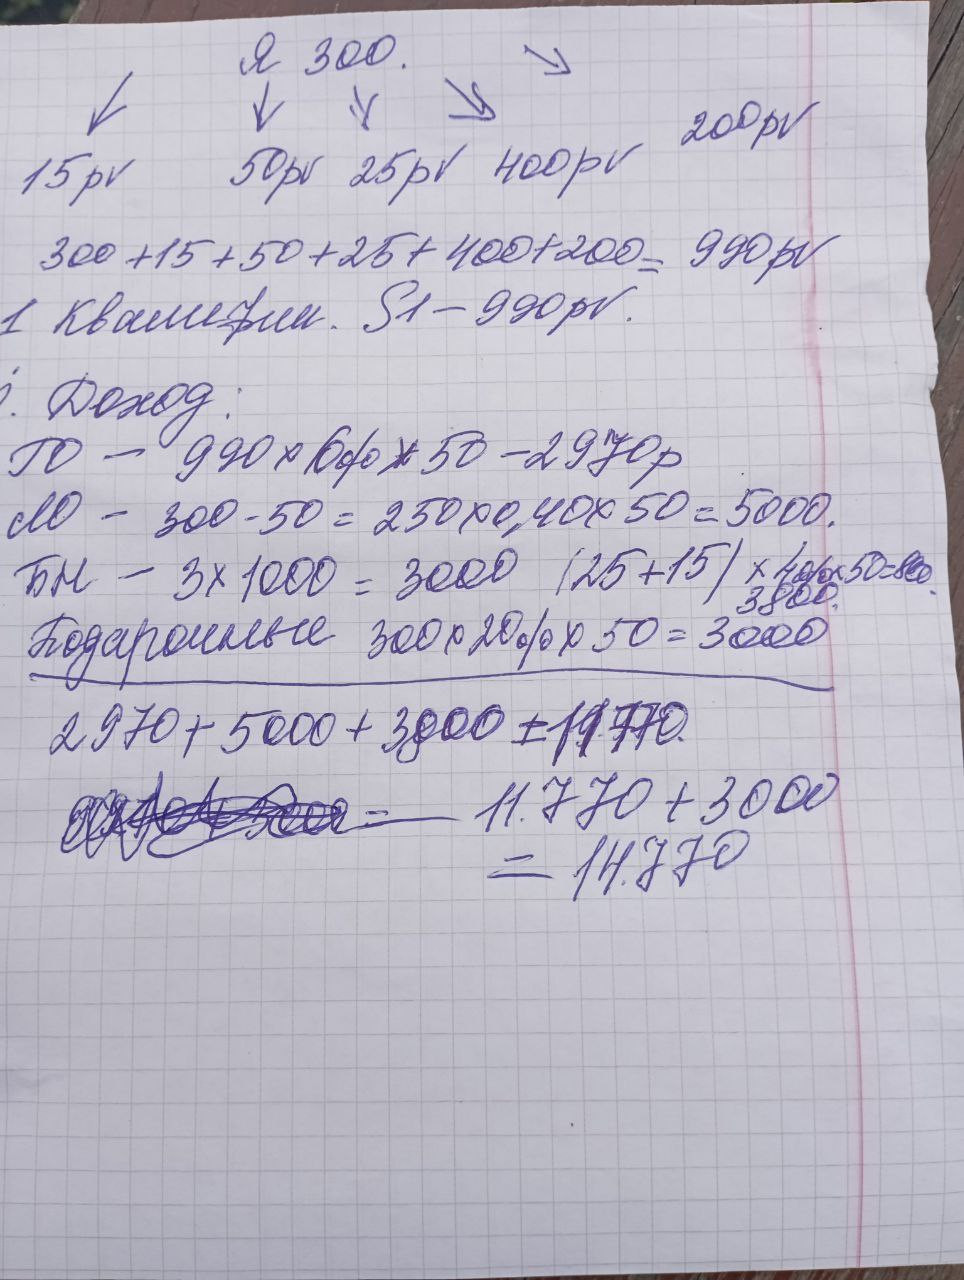 Я 300.
15pv 50pv 25pv 400pv 200pv
300+15+50+25+400+200= 990pv
1 Квалифик. S1-990pv.
. Доход:
ГО - 990×6%×50-2970р
ЛО - 300-50=250×0,40×50=5000.
БН - 3×1000=3000 (25+15)×40%×50=800.
3800.
Подарочные 300×20%×50=3000
2970+5000+3800=11770.
= 11.770+3000
= 14.770